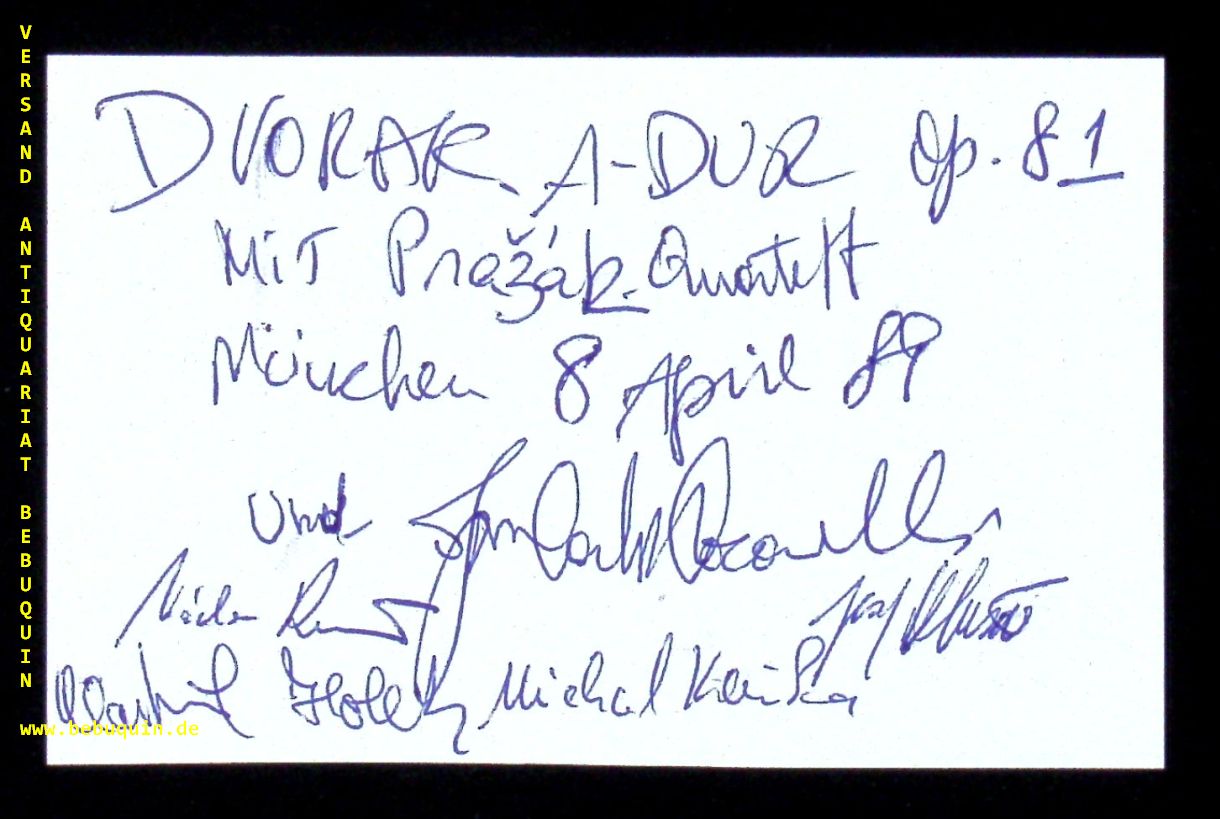 VERSAND ANTIQUARIAT BEBUQUIN
DVORAK A-DUR Op. 81
MiT Pražák-Quartett
München 8 April 89
und
Václav Remeš
Josef Klusoň
Vlastimil Holek Michal Kaňka
www.bebuquin.de